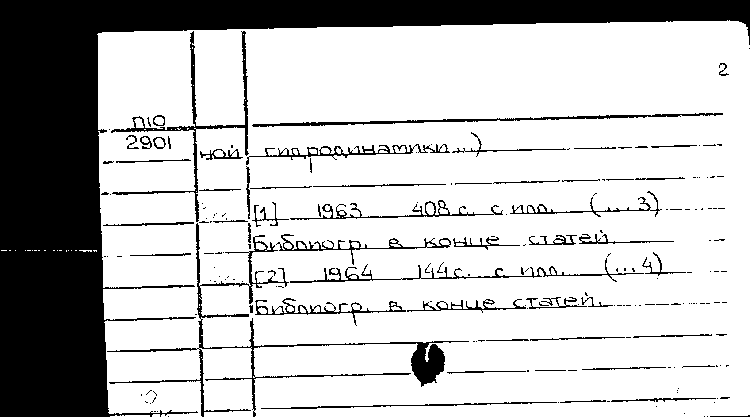 2
П10
2901
ной гидродинамики...)
[1] 1963 408 с. с илл. (...3)
Библиогр. в конце статей.
[2] 1964 144 с. с илл. (...4)
Библиогр. в конце статей.